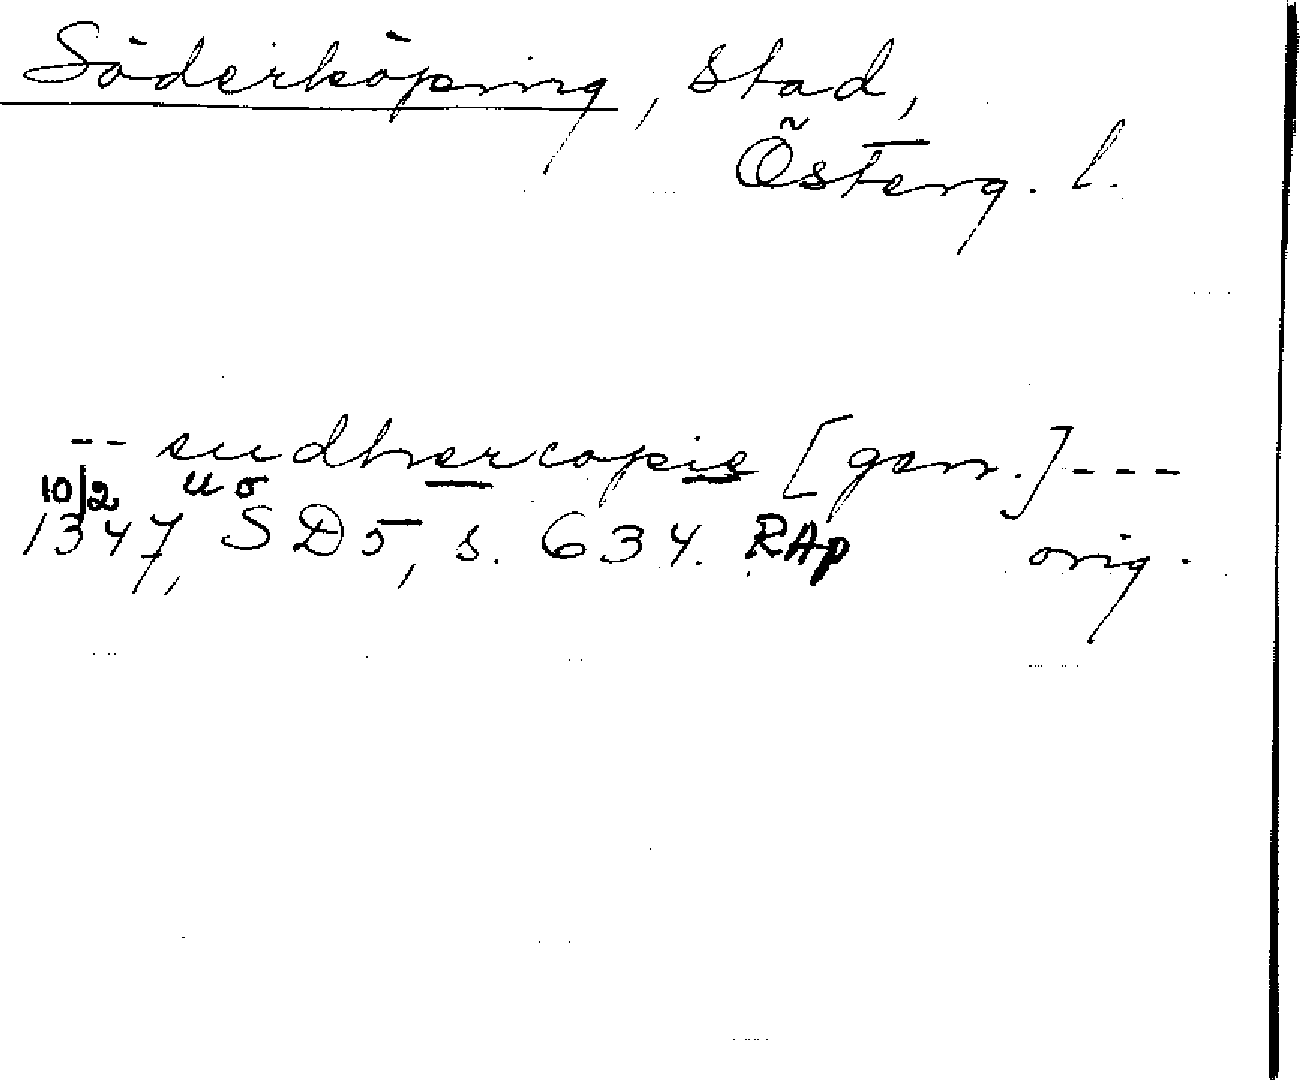 Söderköping, stad,
Österg. l.
-- sudhercopie [gen.] ---
10/2 u o
1347, SD5, s. 634. RAp orig.